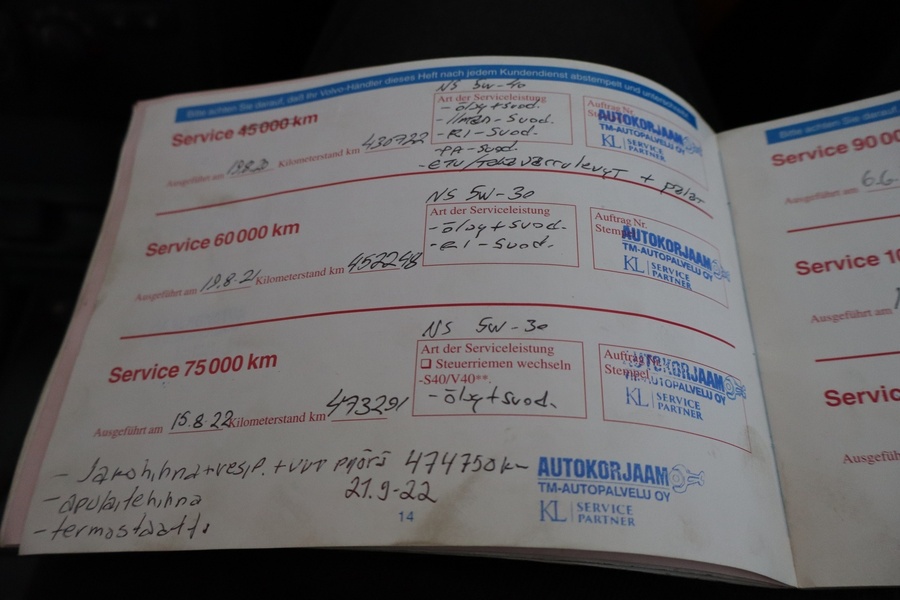 Bitte achten Sie darauf, daß Ihr Volvo-Händler dieses Heft nach jedem Kundendienst abstempelt und unterschreibt
NS 5w-40
Service 45 000 km
Art der Serviceleistung
- öljy + suod.
- ilman - suod.
- RI - suod.
- PA - suod.
Auftrag Nr.
AUTOKORJAAM
TM-AUTOPALVELU OY
KL SERVICE PARTNER
Ausgeführt am Kilometerstand km 430722
NS 5w-30
Service 60 000 km
Art der Serviceleistung
- öljy + suod.
- RI - suod.
Auftrag Nr.
Stempel
AUTOKORJAAM
TM-AUTOPALVELU OY
KL SERVICE PARTNER
Ausgeführt am 19.8-21 Kilometerstand km 452248
NS 5w-30
Service 75 000 km
Art der Serviceleistung
❏ Steuerriemen wechseln
-S40/V40**.
- öljy + suod.
Auftrag Nr.
Stempel
AUTOKORJAAM
TM-AUTOPALVELU OY
KL SERVICE PARTNER
Ausgeführt am 15.8.22 Kilometerstand km 473291
- Jakohihna + vesip. + vvt pyörä 474750 km
- apulaitehihna 21.9-22
- termostaatti
AUTOKORJAAM
TM-AUTOPALVELU OY
KL SERVICE PARTNER
14
Bitte achten Sie darauf,
Service 90 00
Ausgeführt am 6.6.
Service 10
Ausgeführt am
Servic
Ausgefüh